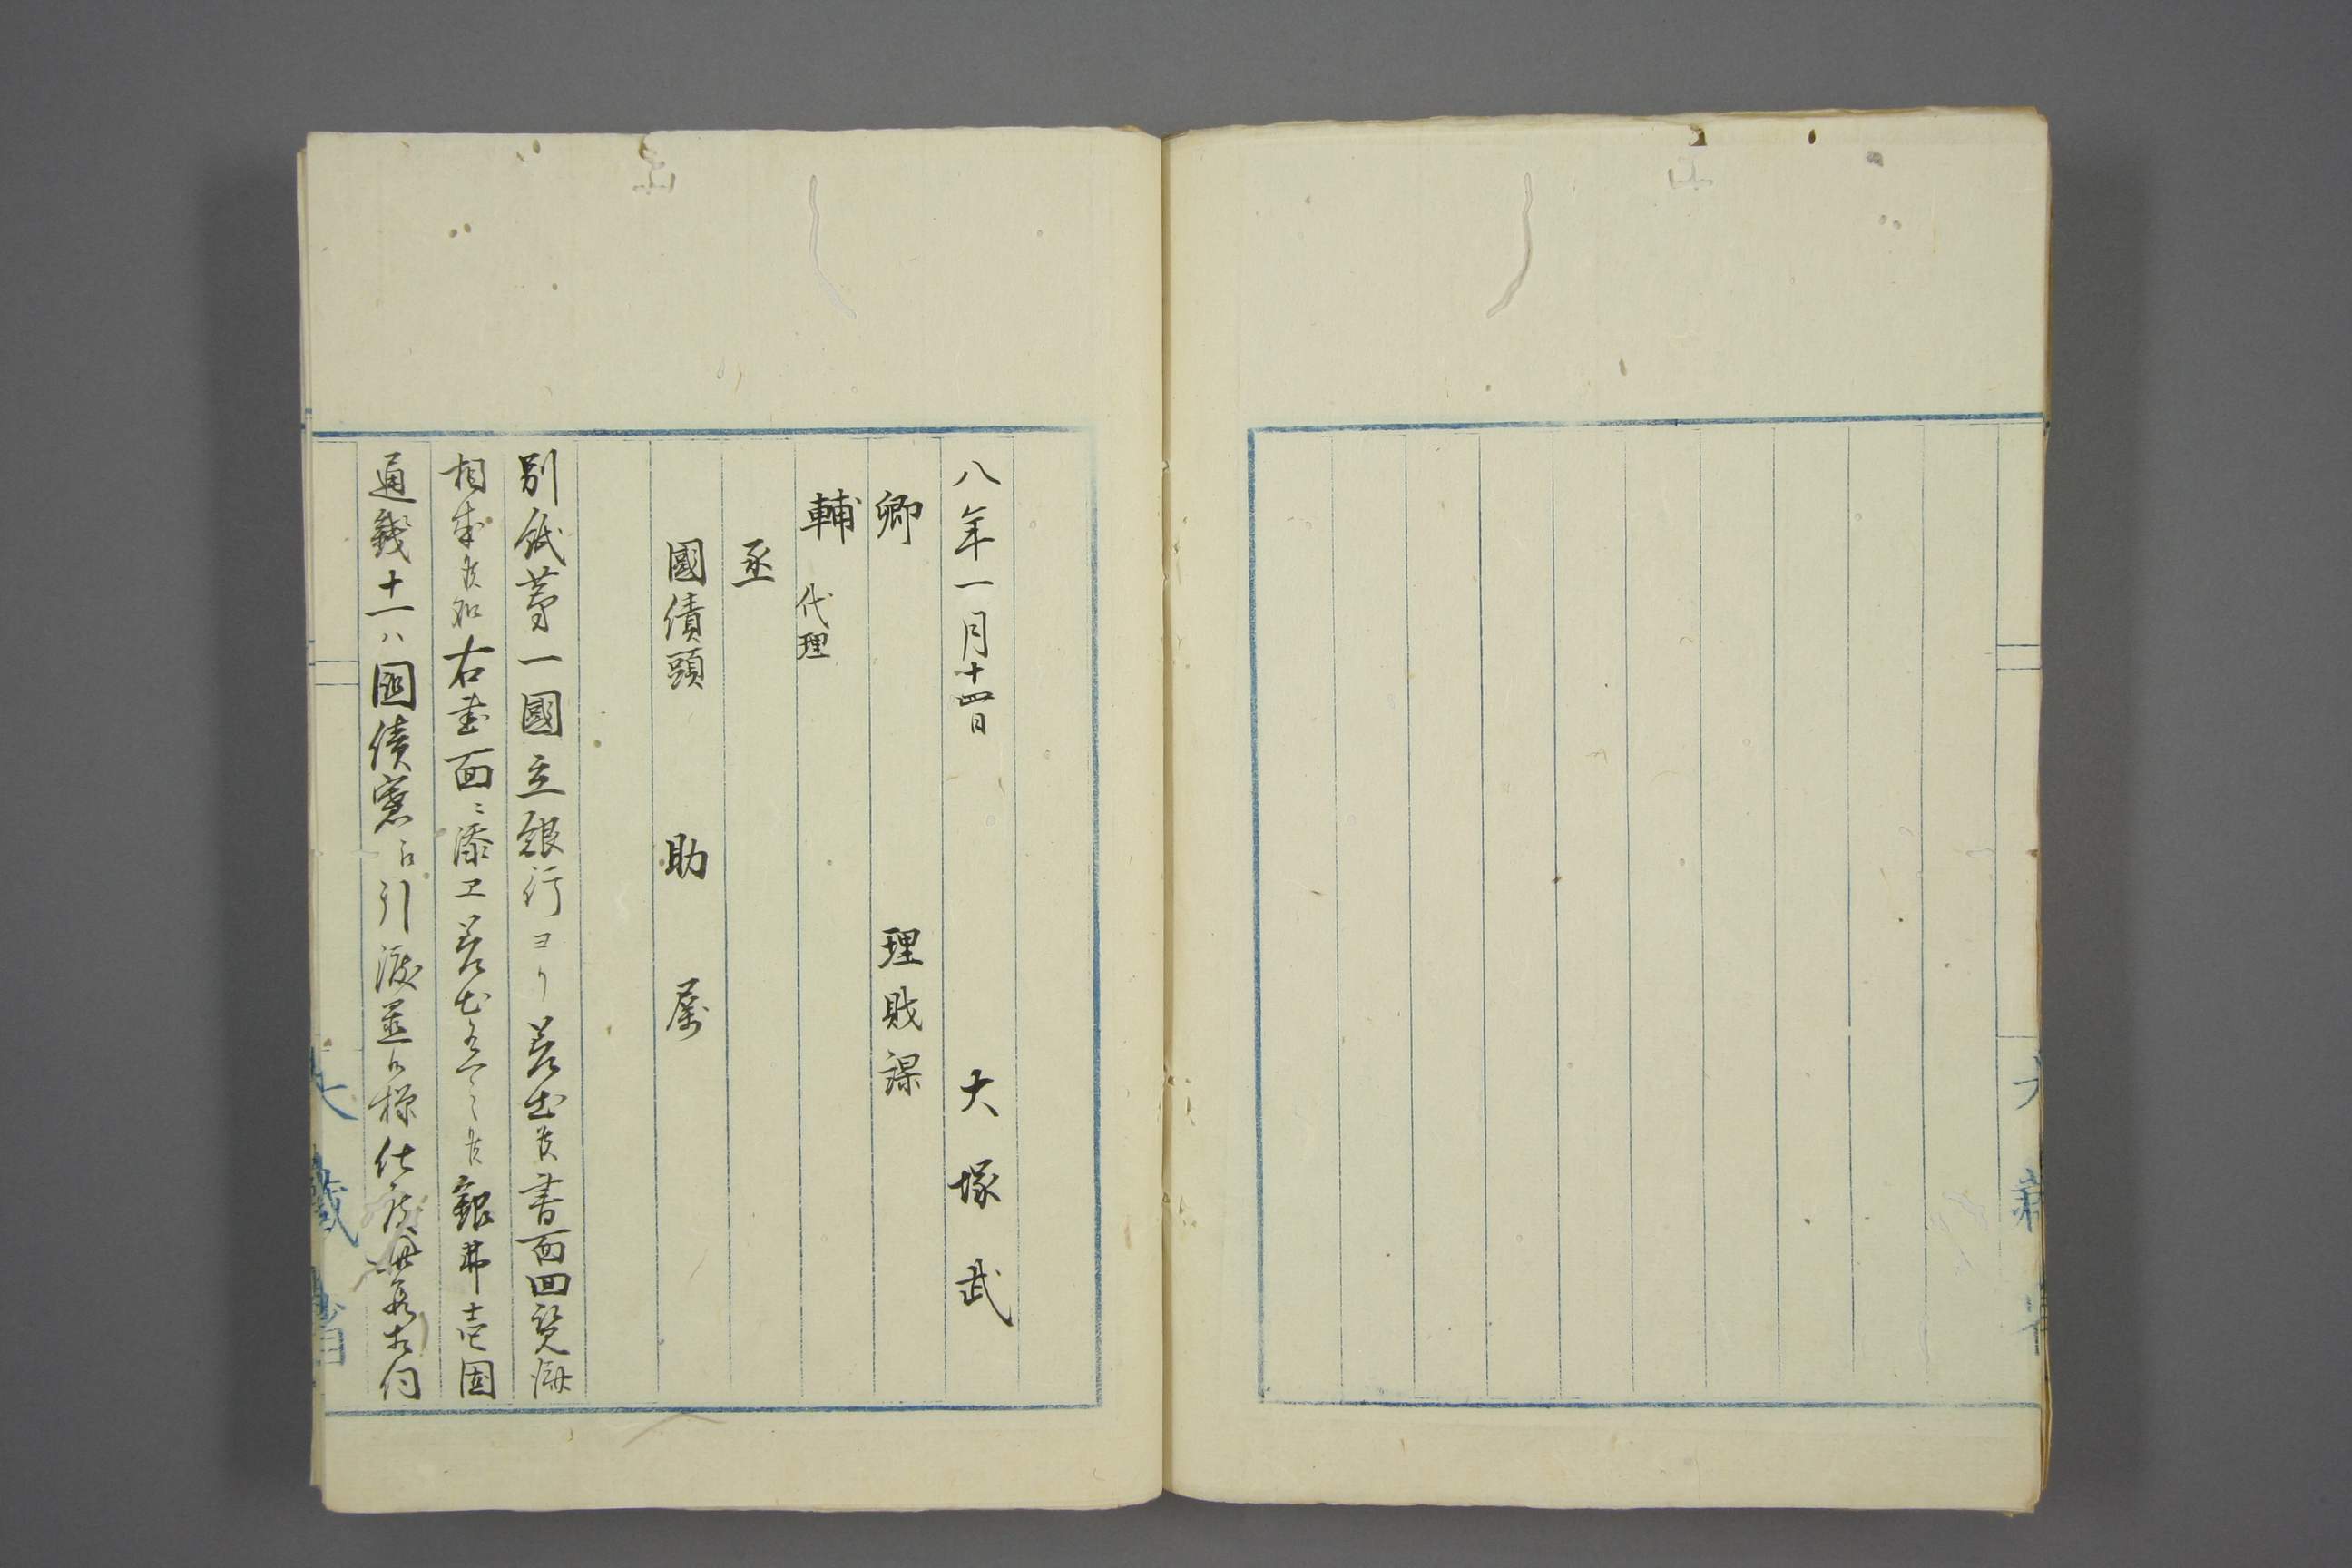 八年一月十四日　大塚武
卿　理財課
輔　代理
丞
國債頭　助　属
別紙第一國立銀行ヨリ差出候書面回覧済
相成候処右書面ニ添エ差出有之候銀弗壱固
通幾十一ハ國債寮ニ引渡置候様仕度此段相伺
大藏省
大藏省